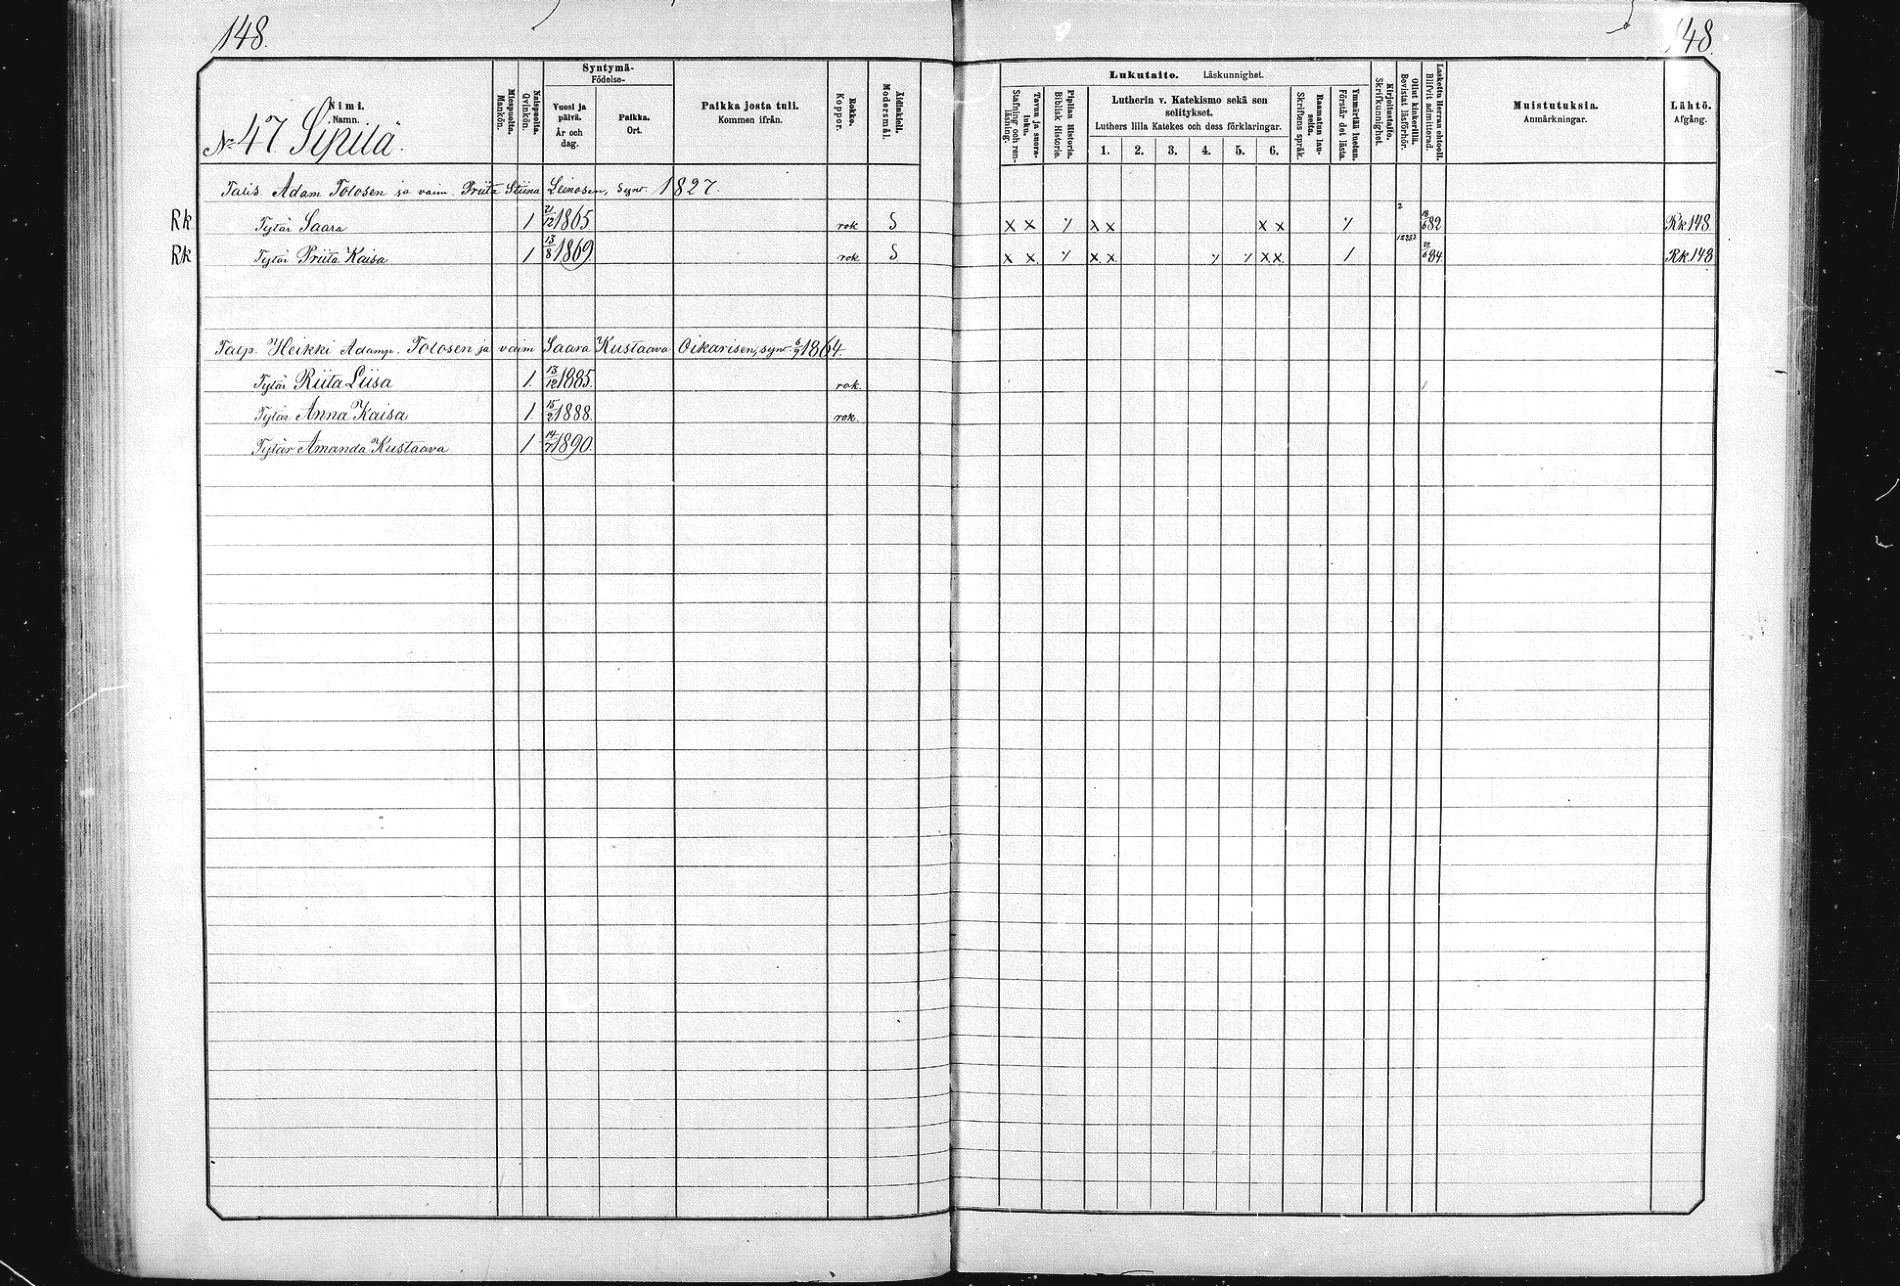 148.
148.
Nimi.
Namn.
Miespuolia.
Mankön.
Naispuolia.
Qvinkön.
Syntymä-
Födelse-
Vuosi ja päivä.
År och dag.
Paikka.
Ort.
Paikka josta tuli.
Kommen ifrån.
Rokko.
Koppor.
Äidinkieli.
Modersmål.
Lukutaito. Läskunnighet.
Tavuu ja suora-luku.
Stafning och ren-läsning.
Piplian Historia.
Biblisk Historie.
Lutherin v. Katekismo sekä sen
selitykset.
Luthers lilla Katekes och dess förklaringar.
1. 2. 3. 4. 5. 6.
Raamatun lau-seita.
Skriftens språk.
Ymmärtää luetun.
Förstår det lästa.
Kirjoitustaito.
Skrifkunnighet.
Ollut kinkerillä.
Bevistat läsförhör.
Laskettu Herran ehtoolle.
Blifvit admitterad.
Muistutuksia.
Anmärkningar.
Lähtö.
Afgång.
No 47 Sipilä.
Talis Adam Tolosen ja vaim. Priita Stiina Leinosen, synt. 1827.
Rk Tytär Saara 1 21/12 1865 rok S x x ٪ x x x x ٪ 2 18/6 82 Rk 148.
Rk Tytär Priita Kaisa 1 13/8 1869 rok S x x ٪ x x ٪ ٪ x x / 84 Rk 148
Talp. Heikki Adamp. Tolosen ja vaim Saara Kustaava Oikarisen, synt 1864.
Tytär Riita Liisa 1. 13/12 1885. rok.
Tytär Anna Kaisa 1 15/2 1888. rok.
Tytär Amanda Kustaava 1 14/7 1890.